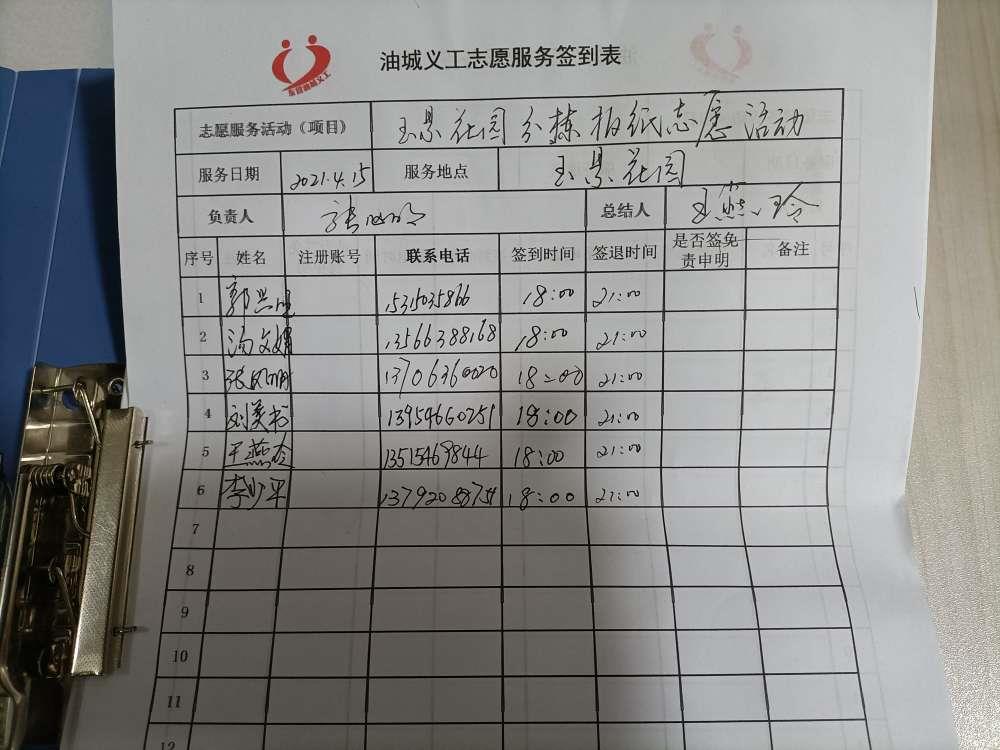 油城义工志愿服务签到表
东营油城义工
志愿服务活动（项目） 玉景花园分拣报纸志愿活动
服务日期 2021.4.15 服务地点 玉景花园
负责人 总结人 王燕玲
序号 姓名 注册账号 联系电话 签到时间 签退时间 是否签免责申明 备注
1 1531035866 18:00 21:00
2 13566388168 18:00 21:00
3 张凤明 13706360020 18:00 21:00
4 刘美书 13954660251 18:00 21:00
5 王燕玲 13515469844 18:00 21:00
6 李少平 18:00 21:00
7
8
9
10
11
12